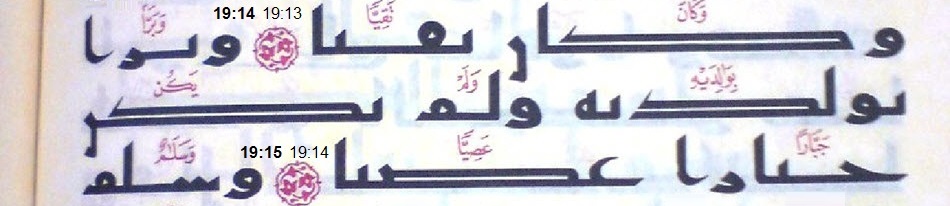 وَكَانَ تَقِيًّا 19:13 19:14 وَبَرًّا
وكان تقيا وبرا
بِوَالِدَيْهِ وَلَمْ يَكُن
بولديه ولم يكن
جَبَّارًا عَصِيًّا 19:14 19:15 وَسَلَامٌ
جبارا عصيا وسلم